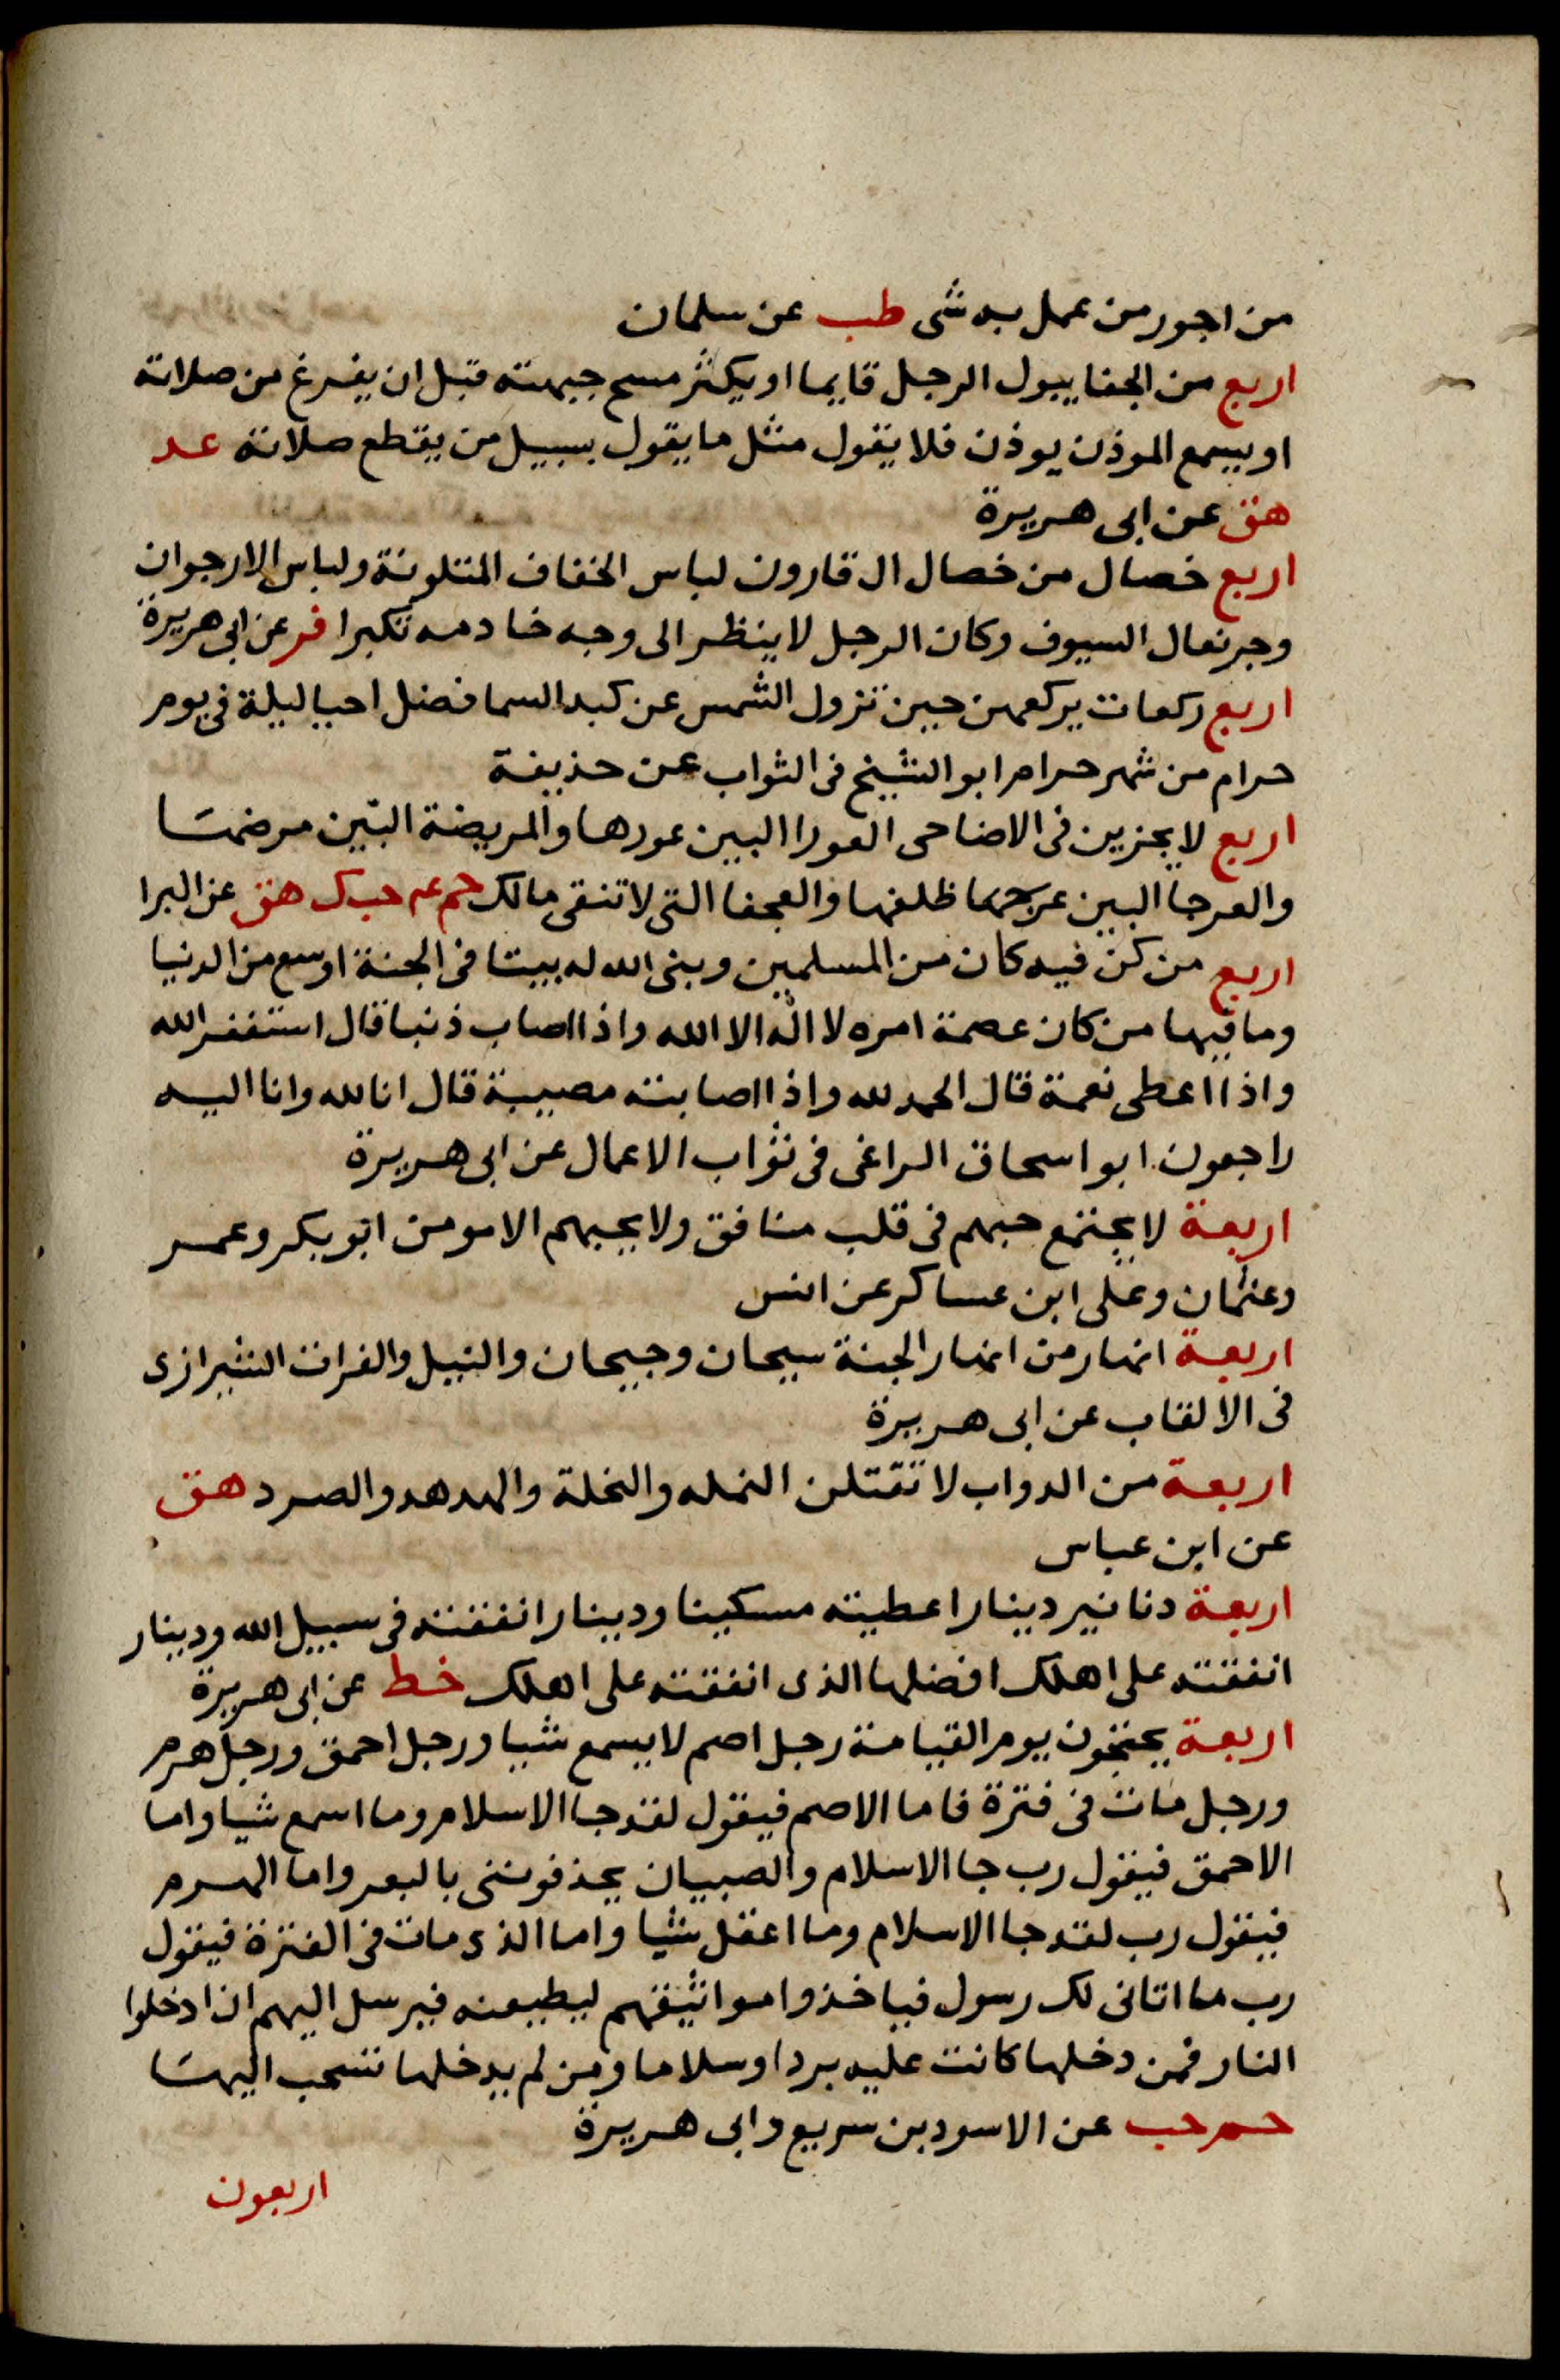 من اجور من عمل به شى طب عن سلمان
اربع من الجفا يبول الرجل قايما او يكثر مسح جبهته قبل ان يفرغ من صلاته
او يسمع الموذن يوذن فلا يقول مثل ما يقول بسبيل من يقطع صلاته عد
هق عن ابى هريرة
اربع خصال من خصال ال قارون لباس الخفاف المتلونة ولباس الارجوان
وجر نعال السيوف وكان الرجل لا ينظر الى وجه خادمه تكبرا فر عن ابى هريرة
اربع ركعات يركعهن حين تزول الشمس عن كبد السما فضل احيا ليلة فى يوم
حرام من شهر حرام ابو الشيخ فى الثواب عن حذيفة
اربع لا يجزين فى الاضاحى العورا البين عورها والمريضة البين مرضها
والعرجا البين عرجها ظلفها والعجفا التى لا تنقى مالك حم عه حب ك هق عن البرا
اربع من كن فيه كان من المسلمين وبنى الله له بيتا فى الجنة اوسع من الدنيا
وما فيها من كان عصمة امره لا اله الا الله واذا اصاب ذنبا قال استغفر الله
واذا اعطى نعمة قال الحمد لله واذا اصابته مصيبة قال انا لله وانا اليه
راجعون ابو اسحاق الراغى فى ثواب الاعمال عن ابى هريرة
اربعة لا يجتمع حبهم فى قلب منافق ولا يحبهم الا مومن ابو بكر وعمر
وعثمان وعلى ابن عساكر عن انس
اربعة انهار من انهار الجنة سيحان وجيحان والنيل والفرات الشيرازى
فى الالقاب عن ابى هريرة
اربعة من الدواب لا تقتلن النمله والنحلة والهدهد والصرد هق
عن ابن عباس
اربعة دنانير دينارا عطيته مسكينا ودينارا نفقته فى سبيل الله ودينار
انفقته على اهلك افضلها الذى انفقته على اهلك خط عن ابى هريرة
اربعة يحتجون يوم القيامة رجل اصم لا يسمع شيا ورجل احمق ورجل هرم
ورجل مات فى فترة فاما الاصم فيقول لقد جا الاسلام وما اسمع شيا واما
الاحمق فيقول رب جا الاسلام والصبيان يحذفوننى بالبعر واما الهرم
فيقول رب لقد جا الاسلام وما اعقل شيا واما الذى مات فى الفترة فيقول
رب ما اتانى لك رسول فياخذوا مواثيقهم ليطيعنه فيرسل اليهم ان ادخلوا
النار فمن دخلها كانت عليه بردا وسلاما ومن لم يدخلها تسحب اليها
حم حب عن الاسود بن سريع وابى هريرة
اربعون